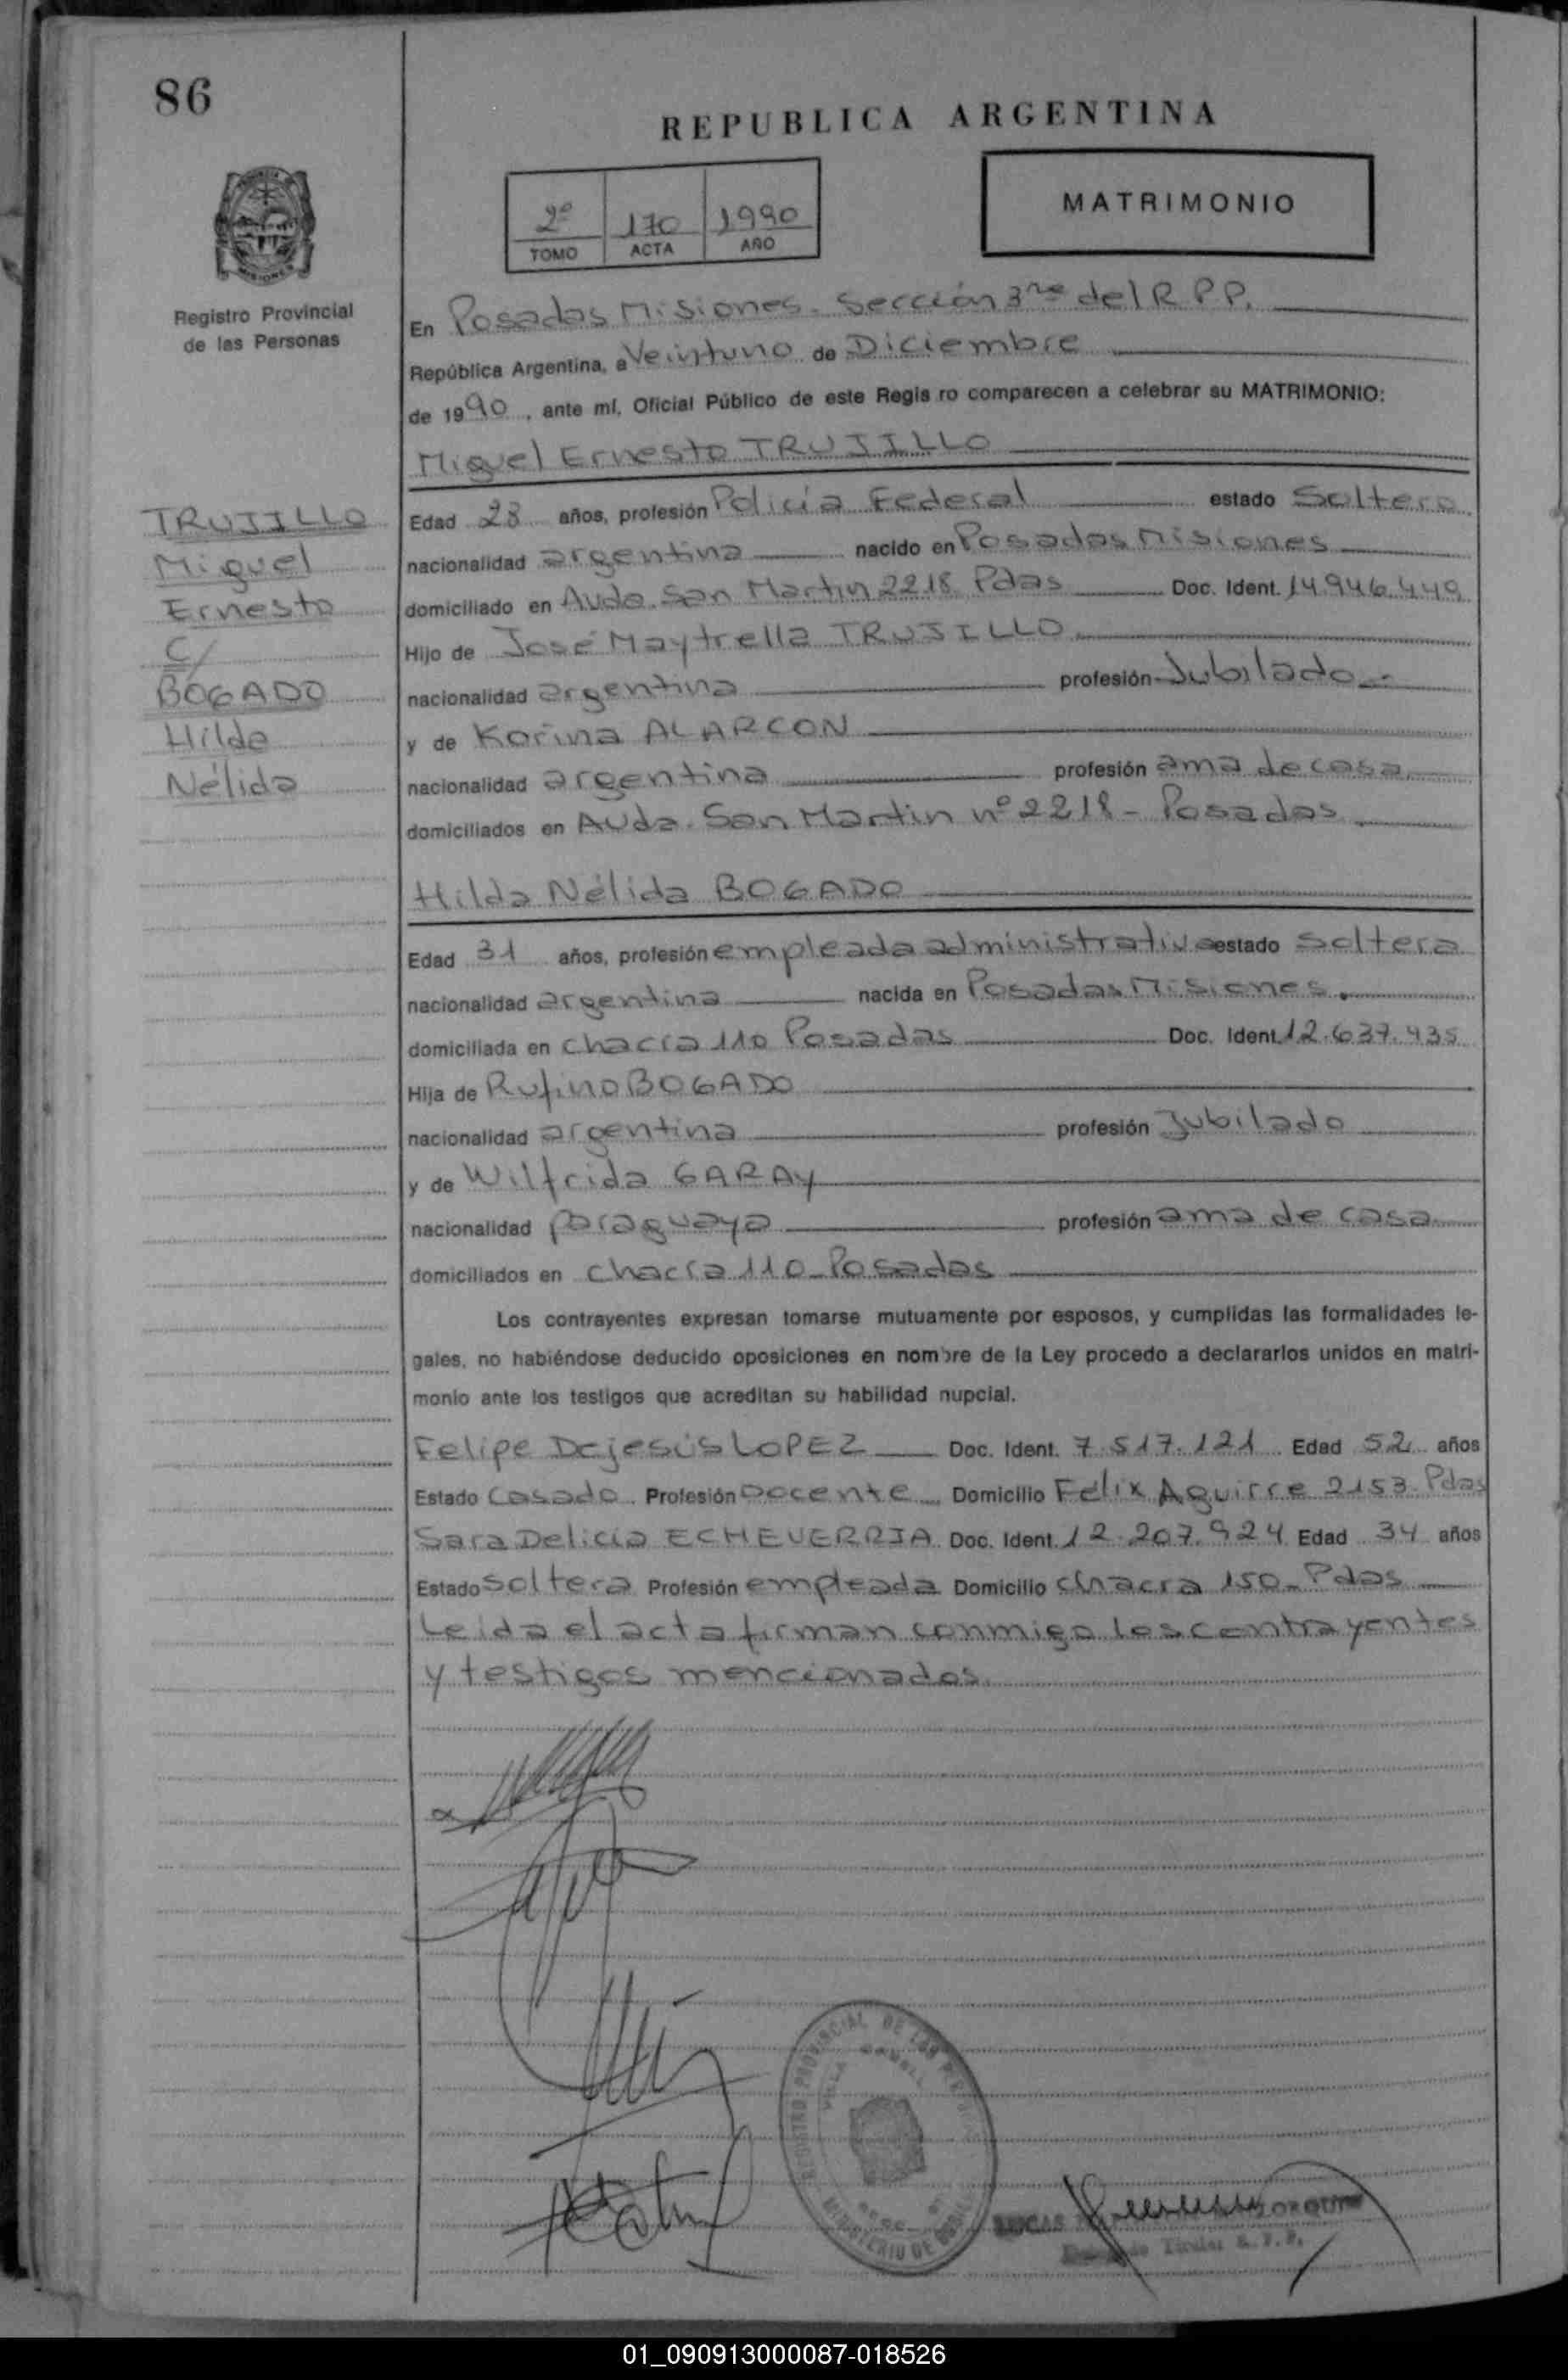 86
REPUBLICA ARGENTINA
2º 170 1990
TOMO ACTA AÑO
MATRIMONIO
MISIONES
Registro Provincial
de las Personas
En Posadas Misiones. Sección 3ra del R P P.
República Argentina, a Veintuno de Diciembre
de 1990, ante mí, Oficial Público de este Regis ro comparecen a celebrar su MATRIMONIO:
Miguel Ernesto TRUJILLO
TRUJILLO
Miguel
Ernesto
C/
BOGADO
Hilda
Nélida
Edad 28 años, profesión Policía Federal estado Soltero.
nacionalidad argentina nacido en Posadas Misiones
domiciliado en Avda. San Martin 2218 Pdas Doc. Ident. 14.946.449
Hijo de José Maytrella TRUJILLO
nacionalidad argentina profesión Jubilado.-
y de Karina ALARCON
nacionalidad argentina profesión ama de casa.
domiciliados en Avda. San Martin nº 2218 - Posadas
Hilda Nélida BOGADO
Edad 31 años, profesión empleada administrativa estado soltera
nacionalidad argentina nacida en Posadas Misiones.
domiciliada en chacra 110 Posadas Doc. Ident. 12.637.435
Hija de Rufino BOGADO
nacionalidad argentina profesión Jubilado
y de Wilfrida GARAY
nacionalidad paraguaya profesión ama de casa
domiciliados en chacra 110 - Posadas
Los contrayentes expresan tomarse mutuamente por esposos, y cumplidas las formalidades le-
gales, no habiéndose deducido oposiciones en nombre de la Ley procedo a declararlos unidos en matri-
monio ante los testigos que acreditan su habilidad nupcial.
Felipe Dejesús LOPEZ Doc. Ident. 7.517.121 Edad 52 años
Estado Casado Profesión Docente Domicilio Félix Aguirre 2153 Pdas
Sara Delicia ECHEVERRIA Doc. Ident. 12.207.924 Edad 34 años
Estado soltera Profesión empleada Domicilio chacra 150 - Pdas
Leida el acta firman conmigo los contrayentes
y testigos mencionados.
REGISTRO PROVINCIAL DE LAS PERSONAS
MINISTERIO DE
LUCAS
Titular R. P. P.
01_090913000087-018526